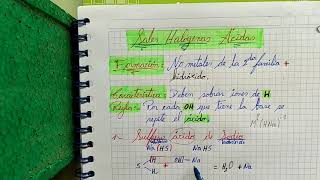 Sales Halógenas Ácidas
Formación: No metales de la 2da familia +
hidróxido.
Característica: Deben sobrar iones de H
Regla: Por cada OH que tiene la base se
repite el ácido.
1- Sulfuro ácido de Sodio
Na(HS) NaHS
S H H + OH - Na = H₂O + Na